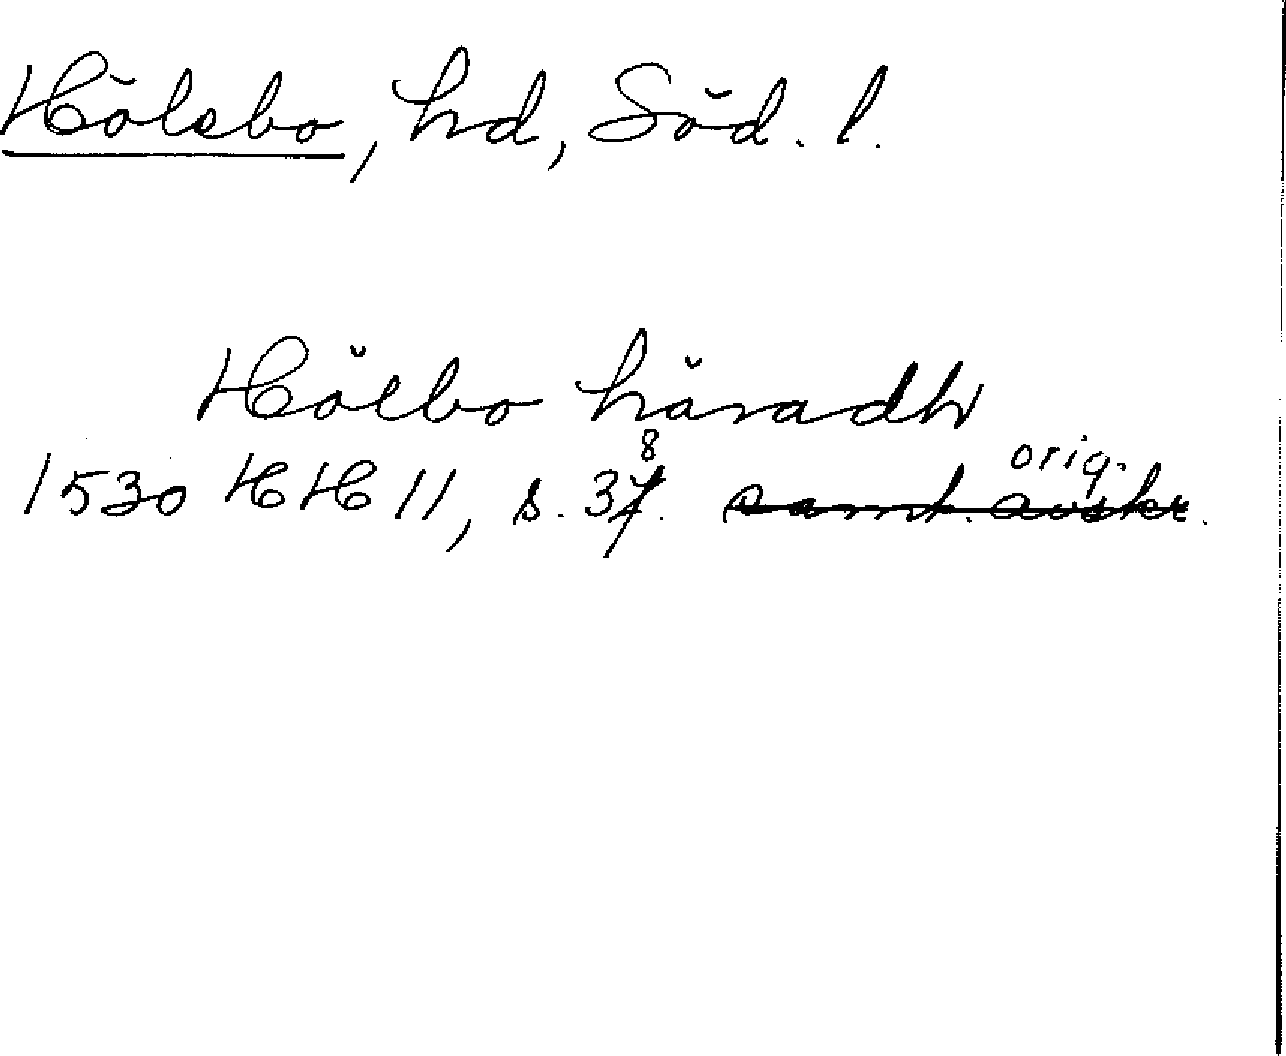 Hölebo, hd, Söd. l.
Hölbo häradh
1530 HH 11, s. 38. orig.